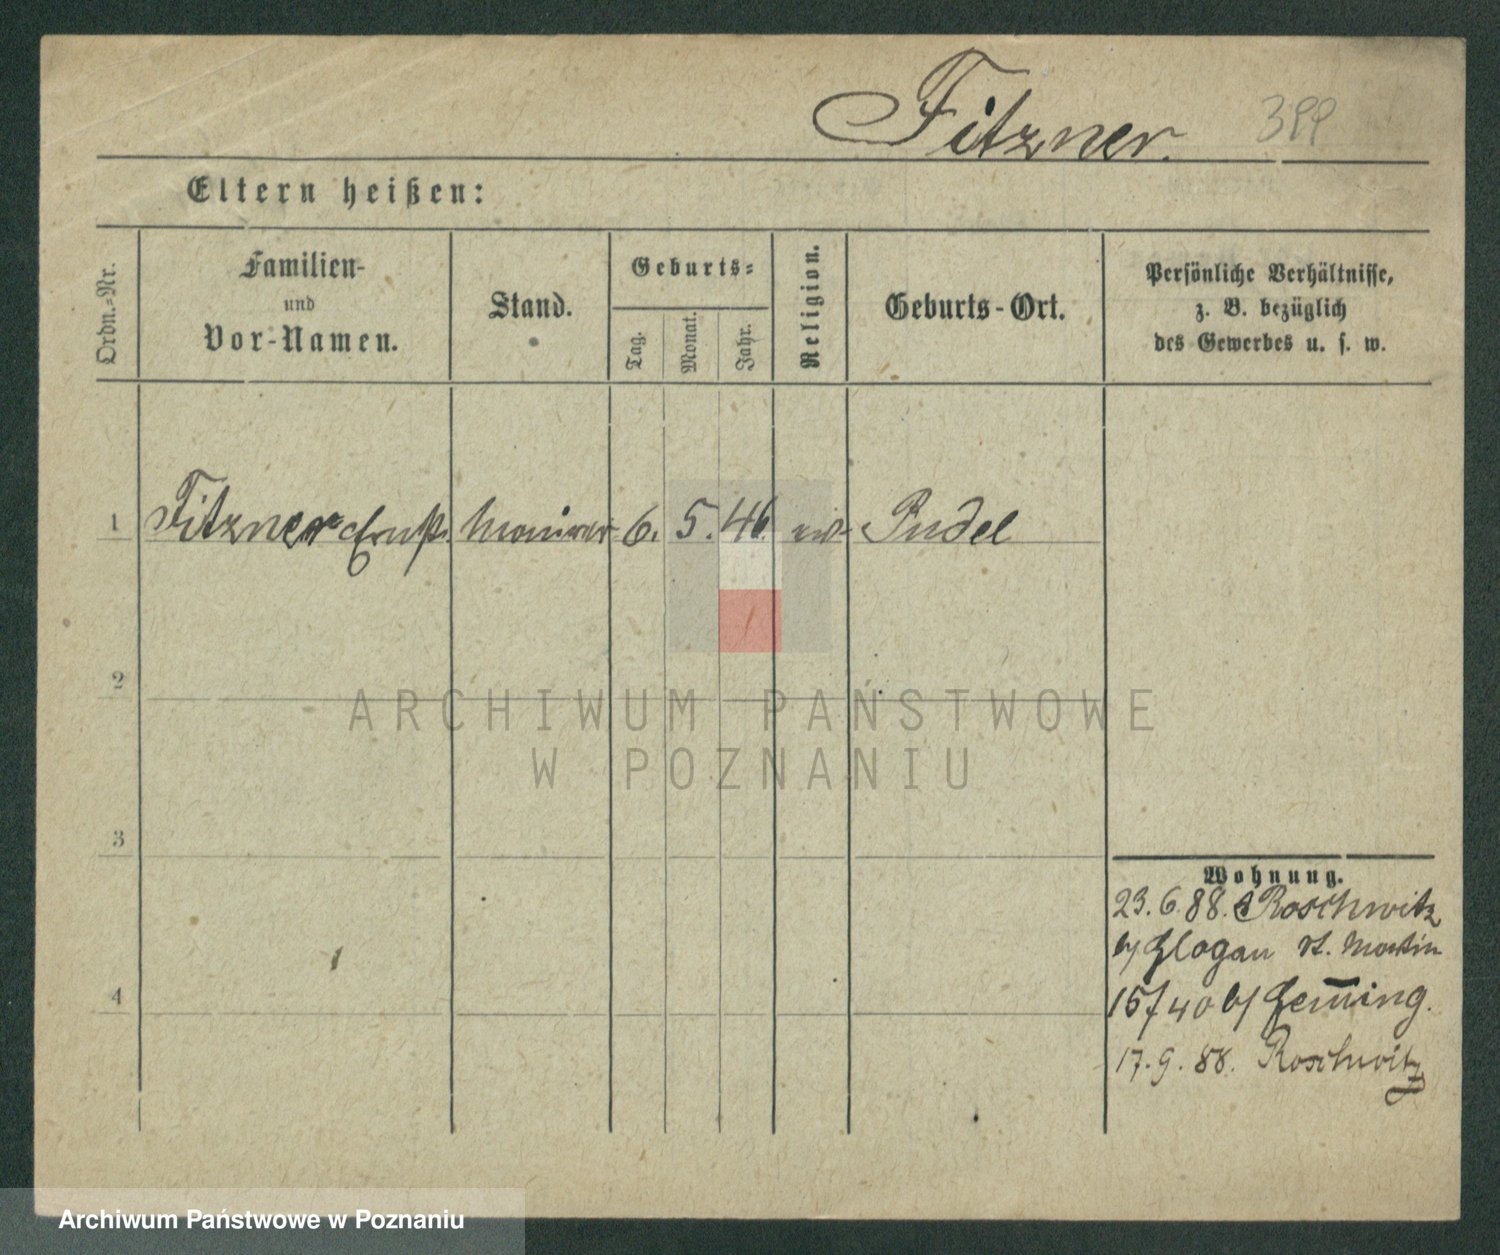 Fitzner. 399
Eltern heißen:
Ordn.-Nr.
Familien-
und
Vor-Namen.
Stand.
Geburts-
Tag.
Monat.
Jahr.
Religion.
Geburts-Ort.
Persönliche Verhältnisse,
z. B. bezüglich
des Gewerbes u. s. w.
1 Fitzner Ernst Maurer 6. 5. 46. ev. Pudel
2
ARCHIWUM PAŃSTWOWE
W POZNANIU
3
4
Wohnung.
23. 6. 88. Roschwitz
b/ Glogau St. Martin
15/40 b/ Hem̅ing.
17. 9. 88. Roschwitz
Archiwum Państwowe w Poznaniu